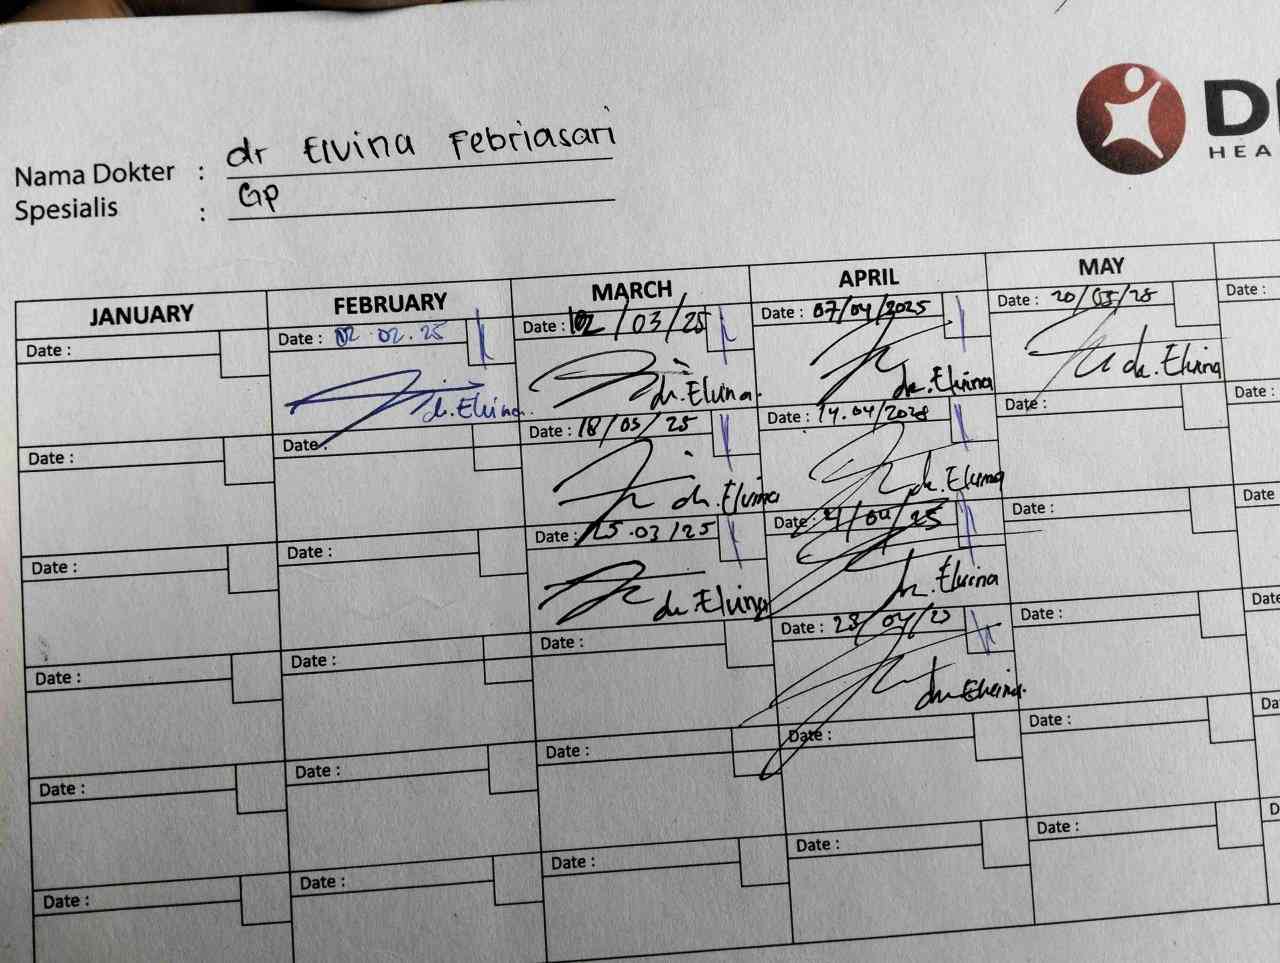 Nama Dokter : dr Elvina Febriasari
Spesialis : GP
HEA
JANUARY FEBRUARY MARCH APRIL MAY
Date : Date : 02.02.25 Date : 02/03/25 Date : 07/04/2025 Date : 20/05/25 Date :
dr. Elvina dr. Elvina dr. Elvina dr. Elvina
Date : Date : Date : 18/03/25 Date : 14.04/2025 Date : Date :
dr. Elvina dr. Elvina
Date : Date : Date : 25.03/25 Date : /04/25 Date : Date
dr. Elvina dr. Elvina
Date : Date : Date : Date : 28/04/25 Date : Date
dr. Elvina
Date : Date : Date : Date : Date : Da
Date : Date : Date : Date : Date : D